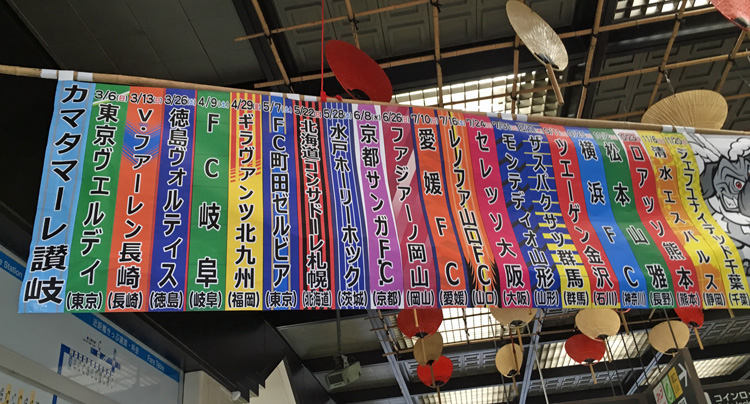 カマタマーレ讃岐
3/6(日)
東京ヴェルディ
(東京)
3/13(日)
V・ファーレン長崎
(長崎)
3/26(土)
徳島ヴォルティス
(徳島)
4/9(土)
FC岐阜
(岐阜)
4/29(金)
ギラヴァンツ北九州
(福岡)
5/7(土)
FC町田ゼルビア
(東京)
5/22(日)
北海道コンサドーレ札幌
(北海道)
5/28(土)
水戸ホーリーホック
(茨城)
6/8(水)
京都サンガF.C.
(京都)
6/26(日)
ファジアーノ岡山
(岡山)
7/10(日)
愛媛FC
(愛媛)
7/16(土)
レノファ山口FC
(山口)
7/24(日)
セレッソ大阪
(大阪)
モンテディオ山形
(山形)
ザスパクサツ群馬
(群馬)
ツエーゲン金沢
(石川)
横浜FC
(神奈川)
松本山雅
(長野)
ロアッソ熊本
(熊本)
11/6(日)
清水エスパルス
(静岡)
ジェフユナイテッド千葉
(千葉)
Station
Fare Table
コインロ